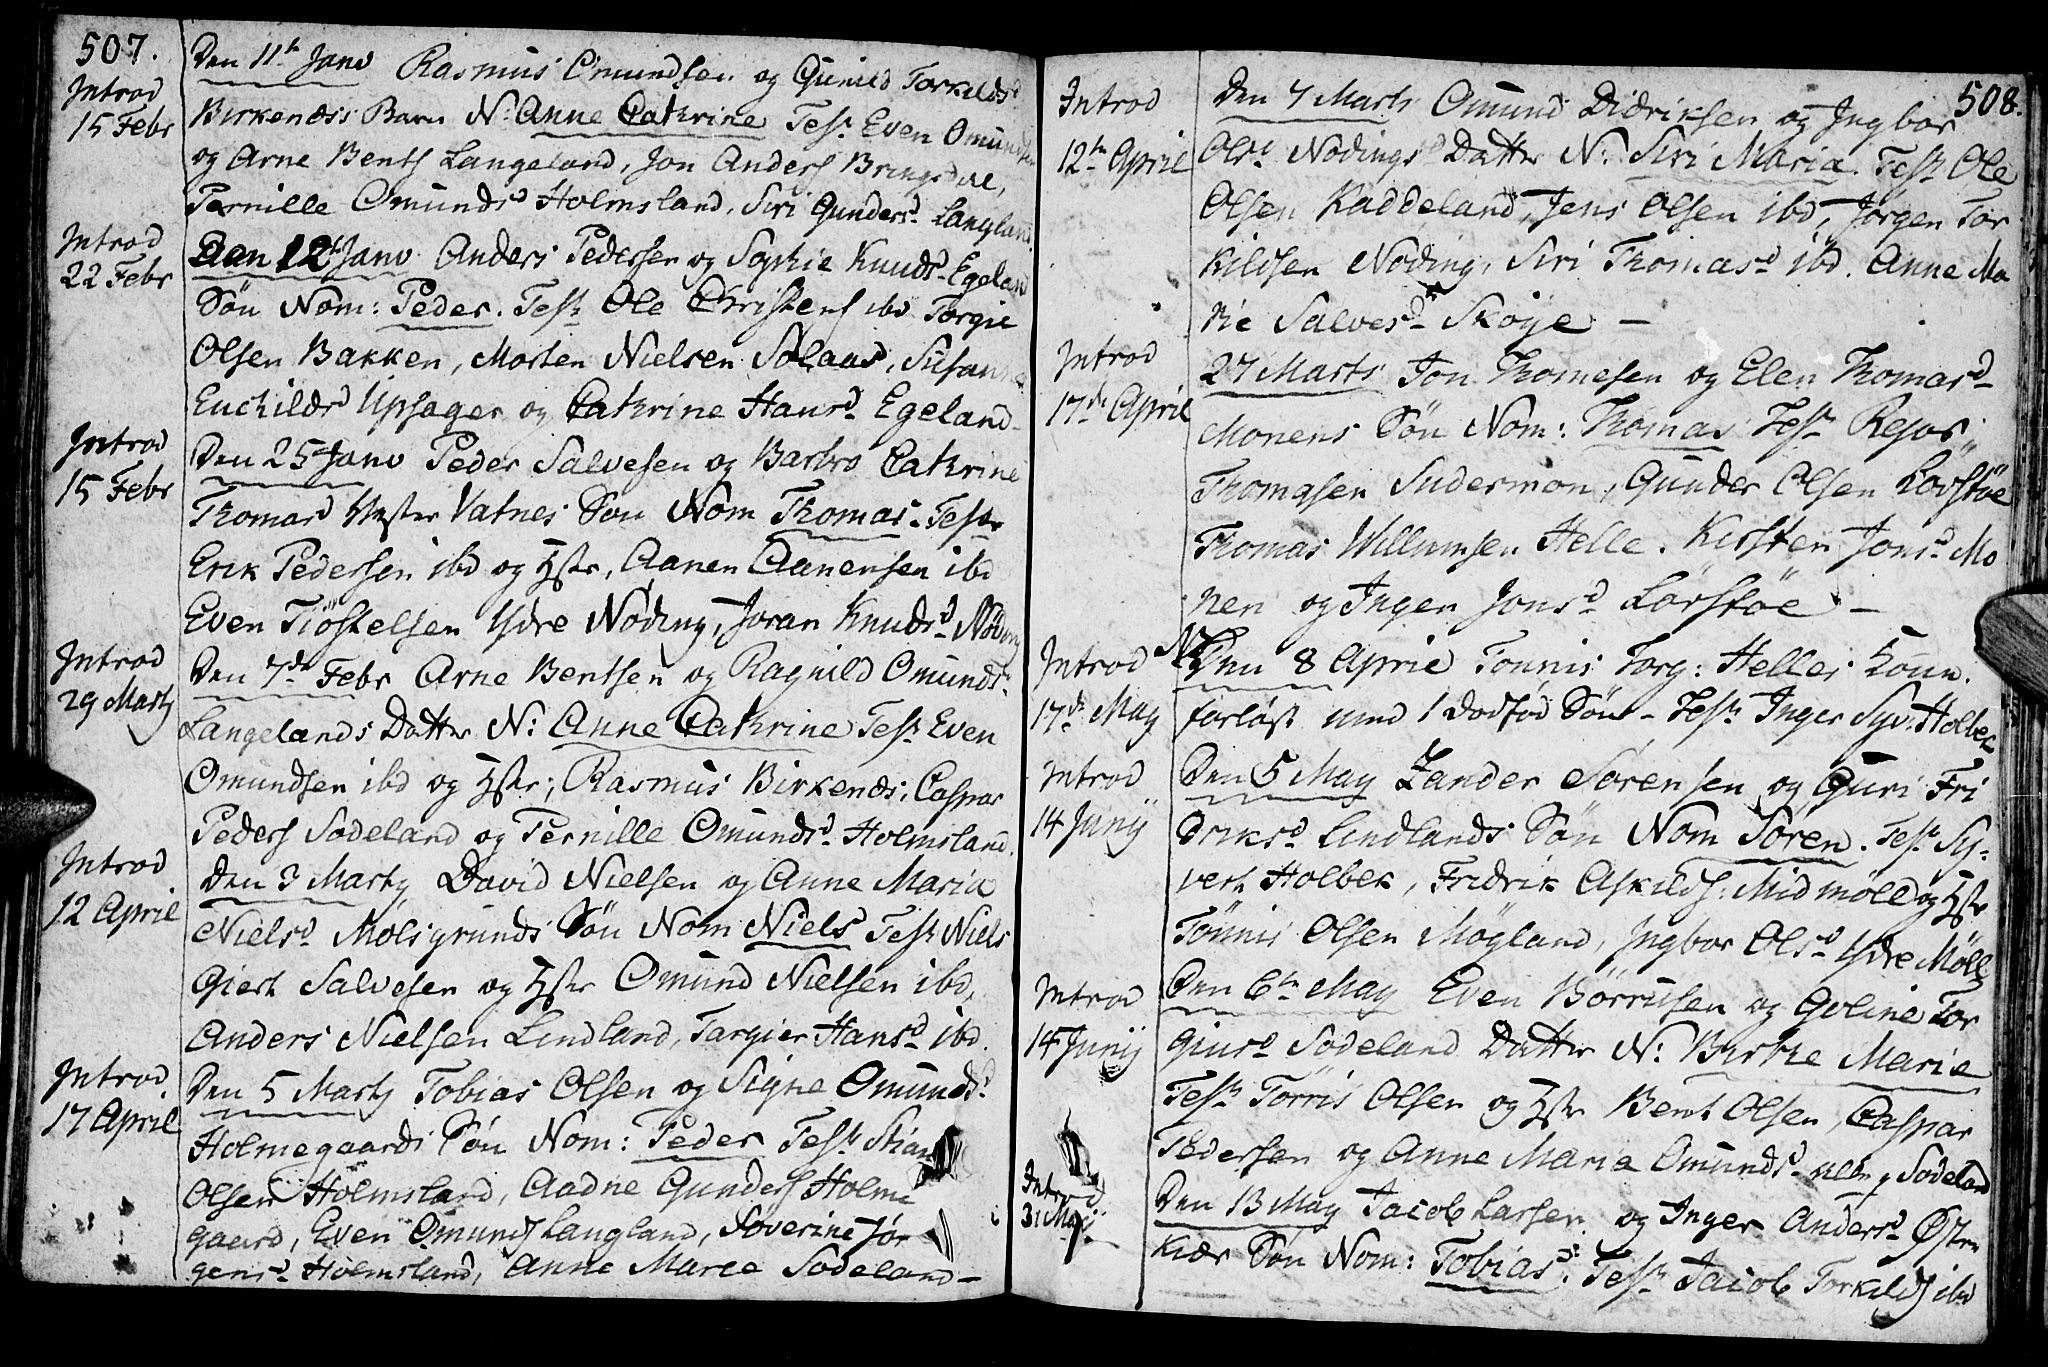 507.
Introd
15 Febr
Den 11te Janv Rasmus Omundsen og Gunild Torkildsd
Birkenæss Barn N: Anne Cathrine Test Even Omundsen
og Arne Bents Langeland, Jon Anders Bringsdal,
Pernille Omundsd Holmsland, Siri Gundersd Langland
Introd
22 Febr
Den 12te Janv Anders Pedersen og Sophie Knudsd Egeland
Søn Nom: Peder. Test Ole Christens ibd Torgie
Olsen Bakken, Morten Nielsen Solaas, Susanna
Euchildsd Upsager og Cathrine Hansd Egeland
Introd
15 Febr
Den 25 Janv Peder Salvesen og Barbro Cathrine
Thomasd Vester Vatnes Søn Nom Thomas. Test
Erik Pedersen ibd og Hstr, Aanen Aanensen ibd
Even Tiøstelsen Ydre Nøding, Joran Knudsd Nøding
Introd
29 Marty
Den 7de Febr Arne Bentsen og Ragnild Omunds
Langelands Datter N: Anne Cathrine Test Even
Omundsen ibd og Hstr; Rasmus Birkenæs, Caspar
Peders Sodeland og Pernille Omundsd Holmsland.
Introd
12 April
Den 3 Marty David Nielsen og Anne Maria
Nielsd Molsgrunds Søn Nom Niels Test Niels
Giert Salvesen og Hstr Omund Nielsen ibd,
Anders Nielsen Lindland, Targier Hansd ibd.
Introd
17 April
Den 5 Marty Tobias Olsen og Signe Omundsd
Holmegaards Søn Nom: Peder Test Stian
Olsen Holmsland, Aadne Gunders Holme
gaard, Even Omunds Langland, Soverine Jør
gensd Holmsland, Anne Marie Sodeland -
508.
Introd
12te April
Den 7 Marts Omund Didriksen og Ingbor
Olsd Nødings Datter N: Siri Maria. Test Ole
Olsen Kaddeland, Jens Olsen ibd, Jørgen Tor
kildsen Nøding, Siri Thomasd ibd. Anne Ma
rie Salvesd Skøye -
Introd
17de April
27 Marts Jon Thomesen og Elen Thomasd
Monens Søn Nom: Thomas Test Rejor
Thomasen Sudermon, Gunder Olsen Lovstøe
Thomas Willumsen Helle. Kirsten Jonsd Mo
nen og Inger Jonsd Lørstøe -
Introd
17de May
Den 8 April Tønnis Torg: Helles Kone
forløst med 1 Dødfød Søn - Test Inger Syv: Holbek
Introd
14 Junij
Den 5 May Zander Sørensen og Guri Fri
driksd Lindlands Søn Nom Søren. Test Sy-
vert Holbek, Fridrik Askilds: Midmøll og Hstr
Tønnis Olsen Møgland, Ingbor Olsd Ydre Møll
Introd
14 Junij
Den 6te May Even Børrusen og Goline Tor
giusd Sødeland Datter N: Birthe Marie
Test Tørris Olsen og Hstr Bent Olsen, Caspar
Pedersen og Anne Maria Omundsd alle p Sodeland
Introd
31 May
Den 13 May Jacob Larsen og Inger Andersd Østre
Kiær Søn Nom: Tobias. Test Jacob Torkilds ibd